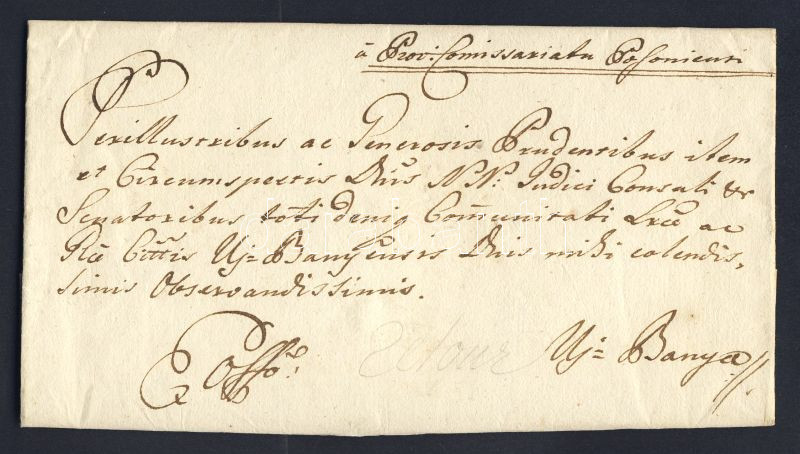 à Prov: Comissariatu Posoniensi
Perillustribus ac Generosis Prudentibus item
et Circumspectis Dnis NN: Iudici Consuli &
Senatoribus toti deniq Comunitati Lræ ac
Ræ Cittis Uj= Banyensis Dnis mihi colendis,
simis Observandissimis.
Ex Offo: Uj= Banya